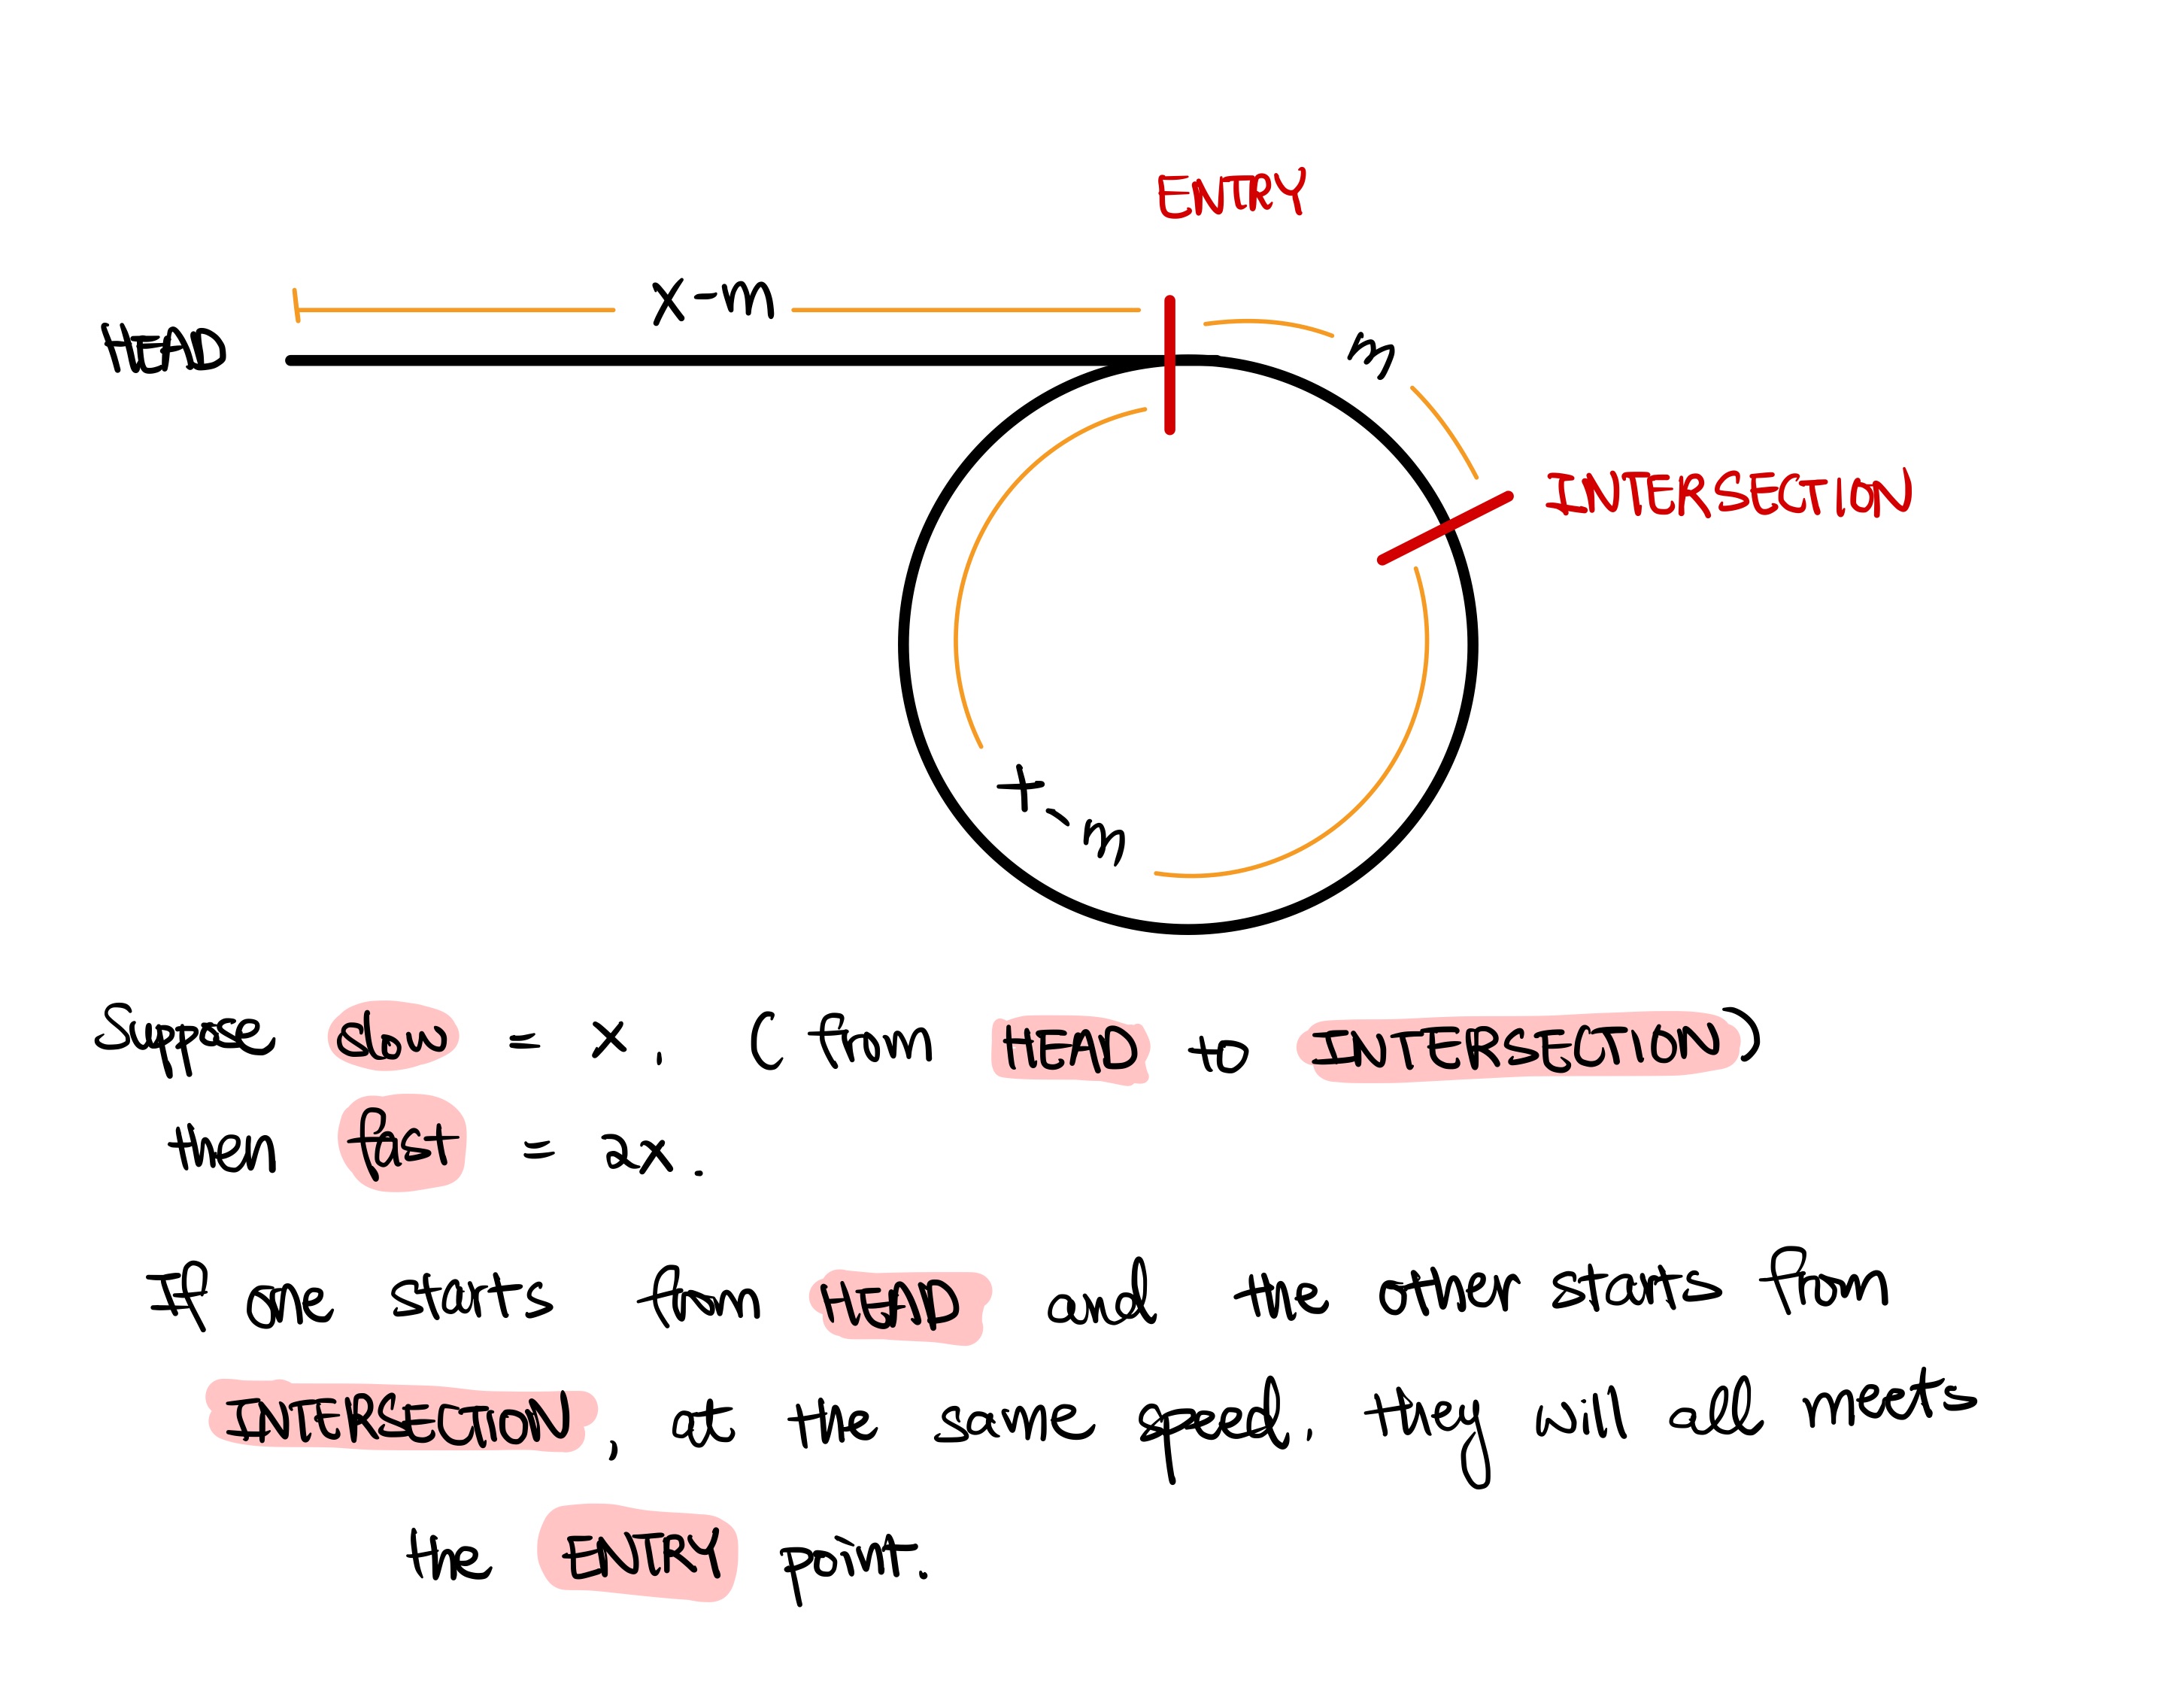 ENTRY
x-m
HEAD
m
INTERSECTION
x-m
Suppose slow = x. ( from HEAD to INTERSECTION)
then fast = 2x.
If one starts from HEAD and the other starts from
INTERSECTION, at the same speed, they will all meets
the ENTRY point.